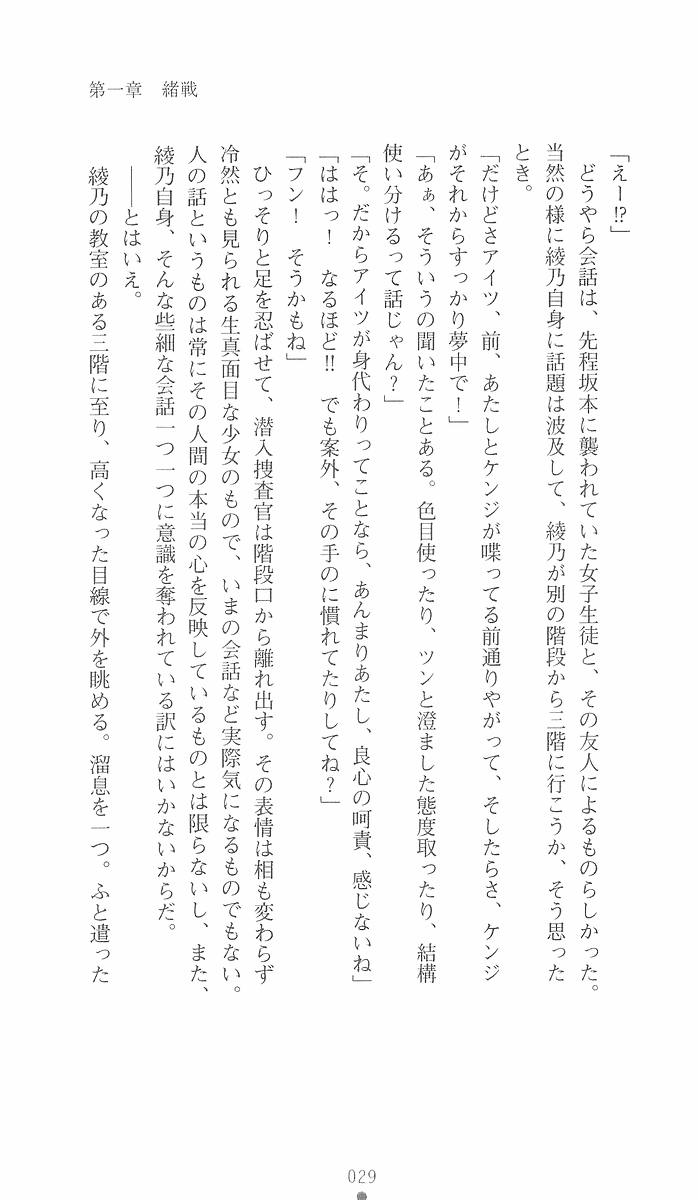 第一章　緒戦
「えー⁉」
　どうやら会話は、先程坂本に襲われていた女子生徒と、その友人によるものらしかった。
当然の様に綾乃自身に話題は波及して、綾乃が別の階段から三階に行こうか、そう思った
とき。
「だけどさアイツ、前、あたしとケンジが喋ってる前通りやがって、そしたらさ、ケンジ
がそれからすっかり夢中で！」
「あぁ、そういうの聞いたことある。色目使ったり、ツンと澄ました態度取ったり、結構
使い分けるって話じゃん？」
「そ。だからアイツが身代わりってことなら、あんまりあたし、良心の呵責、感じないね」
「ははっ！　なるほど‼　でも案外、その手のに慣れてたりしてね？」
「フン！　そうかもね」
　ひっそりと足を忍ばせて、潜入捜査官は階段口から離れ出す。その表情は相も変わらず
冷然とも見られる生真面目な少女のもので、いまの会話など実際気になるものでもない。
人の話というものは常にその人間の本当の心を反映しているものとは限らないし、また、
綾乃自身、そんな些細な会話一つ一つに意識を奪われている訳にはいかないからだ。
　――とはいえ。
　綾乃の教室のある三階に至り、高くなった目線で外を眺める。溜息を一つ。ふと遣った
029